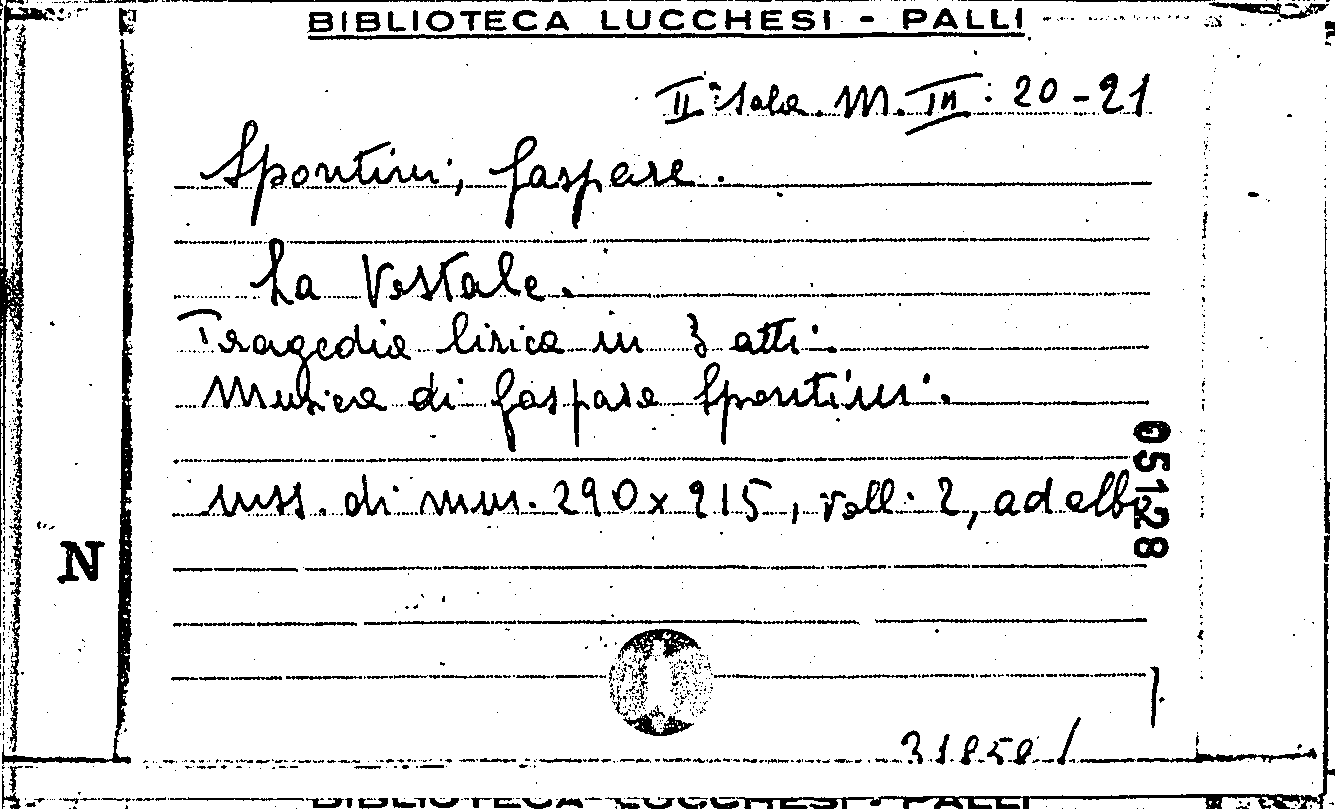 BIBLIOTECA LUCCHESI - PALLI
IIª Sala. M. III. 20-21
Spontini, Gaspare.
La Vestale.
Tragedia lirica in 3 atti.
Musica di Gaspare Spontini.
mss. di mm. 290x215, voll. 2, ad albo
05128
N
BIBLIOTECA LUCCHESI - PALLI